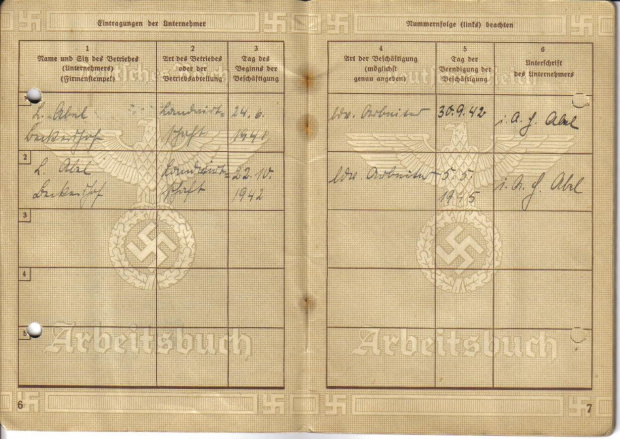 Eintragungen der Unternehmer
1
Name und Sitz des Betriebes
(Unternehmers)
(Firmenstempel)
2
Art des Betriebes
oder der
Betriebsabteilung
3
Tag des
Beginns der
Beschäftigung
1
L. Abel
Beckershof
Landwirt=
schaft
24.6.
1940
2
L. Abel
Beckershof
Landwirt=
schaft
22.10.
1942
3
4
5
Deutsches
Arbeitsbuch
6
Nummernfolge (links) beachten
4
Art der Beschäftigung
(möglichst
genau angeben)
5
Tag der
Beendigung der
Beschäftigung
6
Unterschrift
des Unternehmers
ldw. Arbeiter
30.9.42
i. A. H. Abel
ldw. Arbeiter
5.5.
1945
i. A. H. Abel
Deutsches Reich
Arbeitsbuch
7